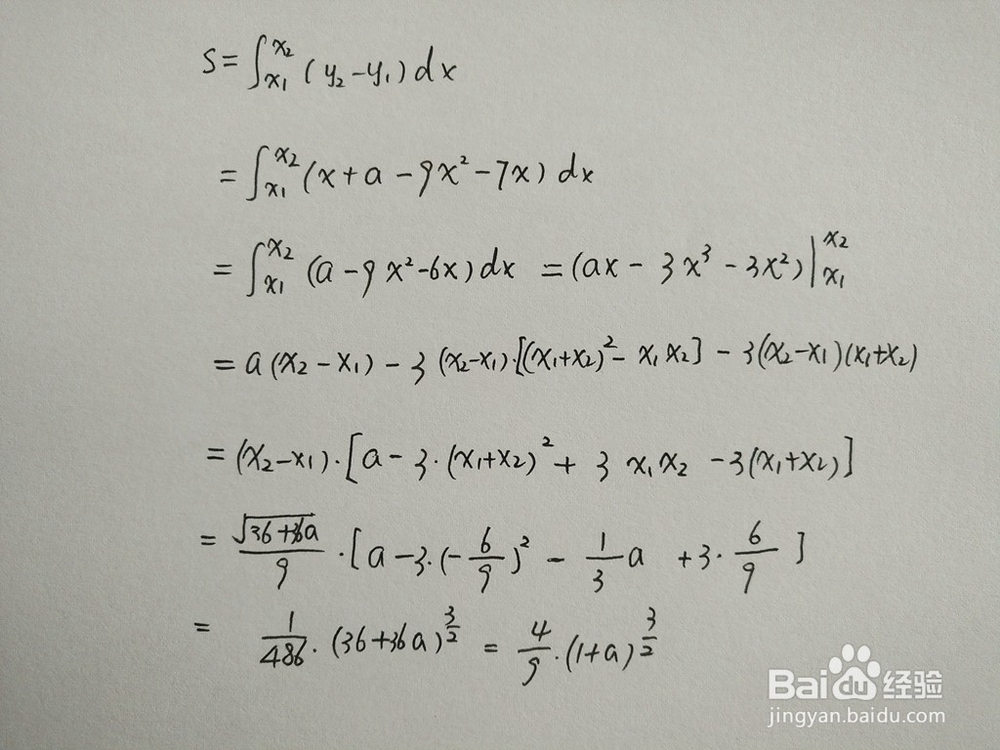 S=∫_{x₁}^{x₂}(y₂-y₁)dx
=∫_{x₁}^{x₂}(x+a-9x²-7x)dx
=∫_{x₁}^{x₂}(a-9x²-6x)dx =(ax-3x³-3x²)|_{x₁}^{x₂}
=a(x₂-x₁)-3(x₂-x₁)·[(x₁+x₂)²-x₁x₂]-3(x₂-x₁)(x₁+x₂)
=(x₂-x₁)·[a-3·(x₁+x₂)²+3x₁x₂-3(x₁+x₂)]
=\frac{\sqrt{36+36a}}{9}·[a-3·(-\frac{6}{9})²-\frac{1}{3}a+3·\frac{6}{9}]
=\frac{1}{486}·(36+36a)^{\frac{3}{2}}=\frac{4}{9}·(1+a)^{\frac{3}{2}}
Baidu经验
jingyan.baidu.com